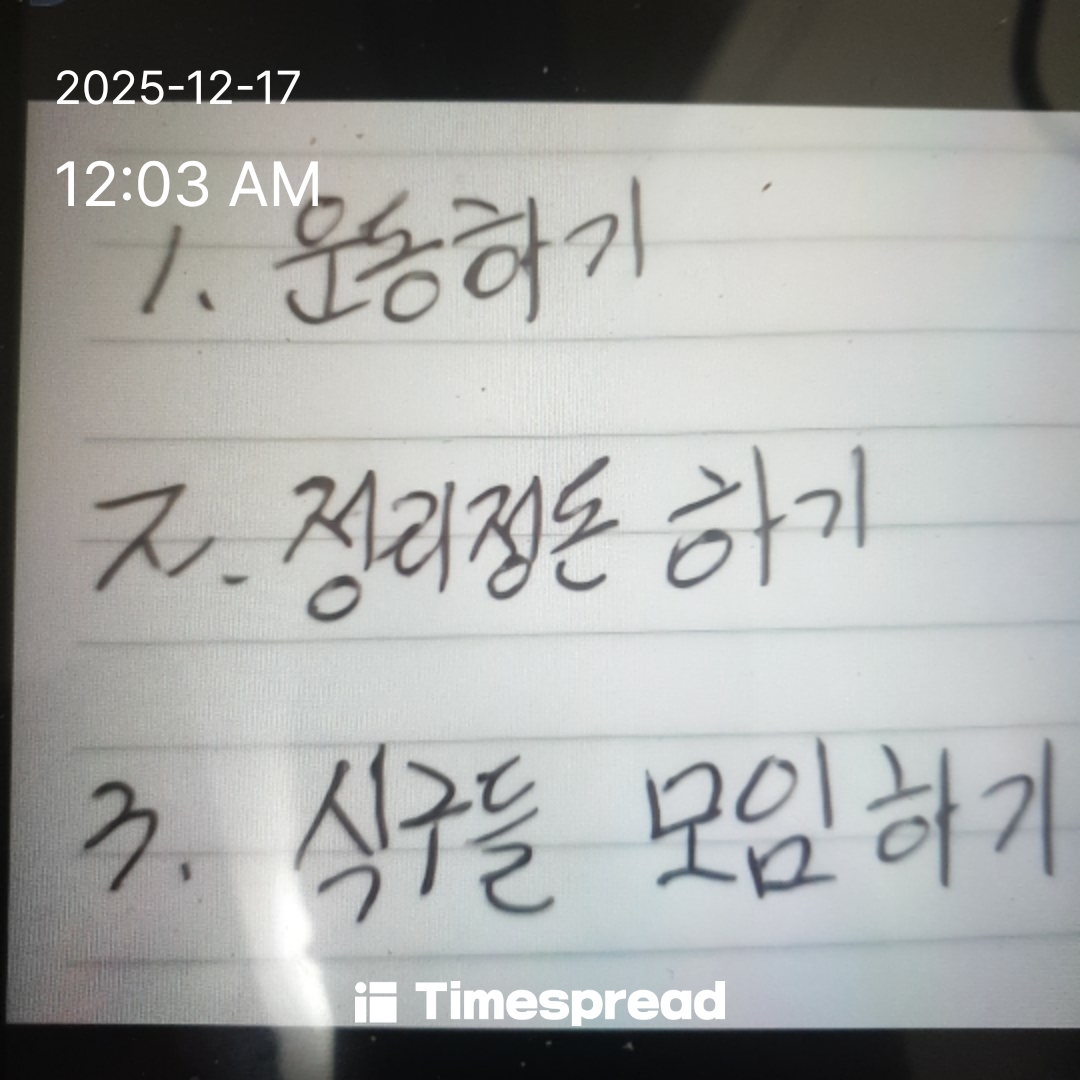 2025-12-17
12:03 AM
1. 운동하기
2. 정리정돈 하기
3. 식구들 모임하기
Timespread